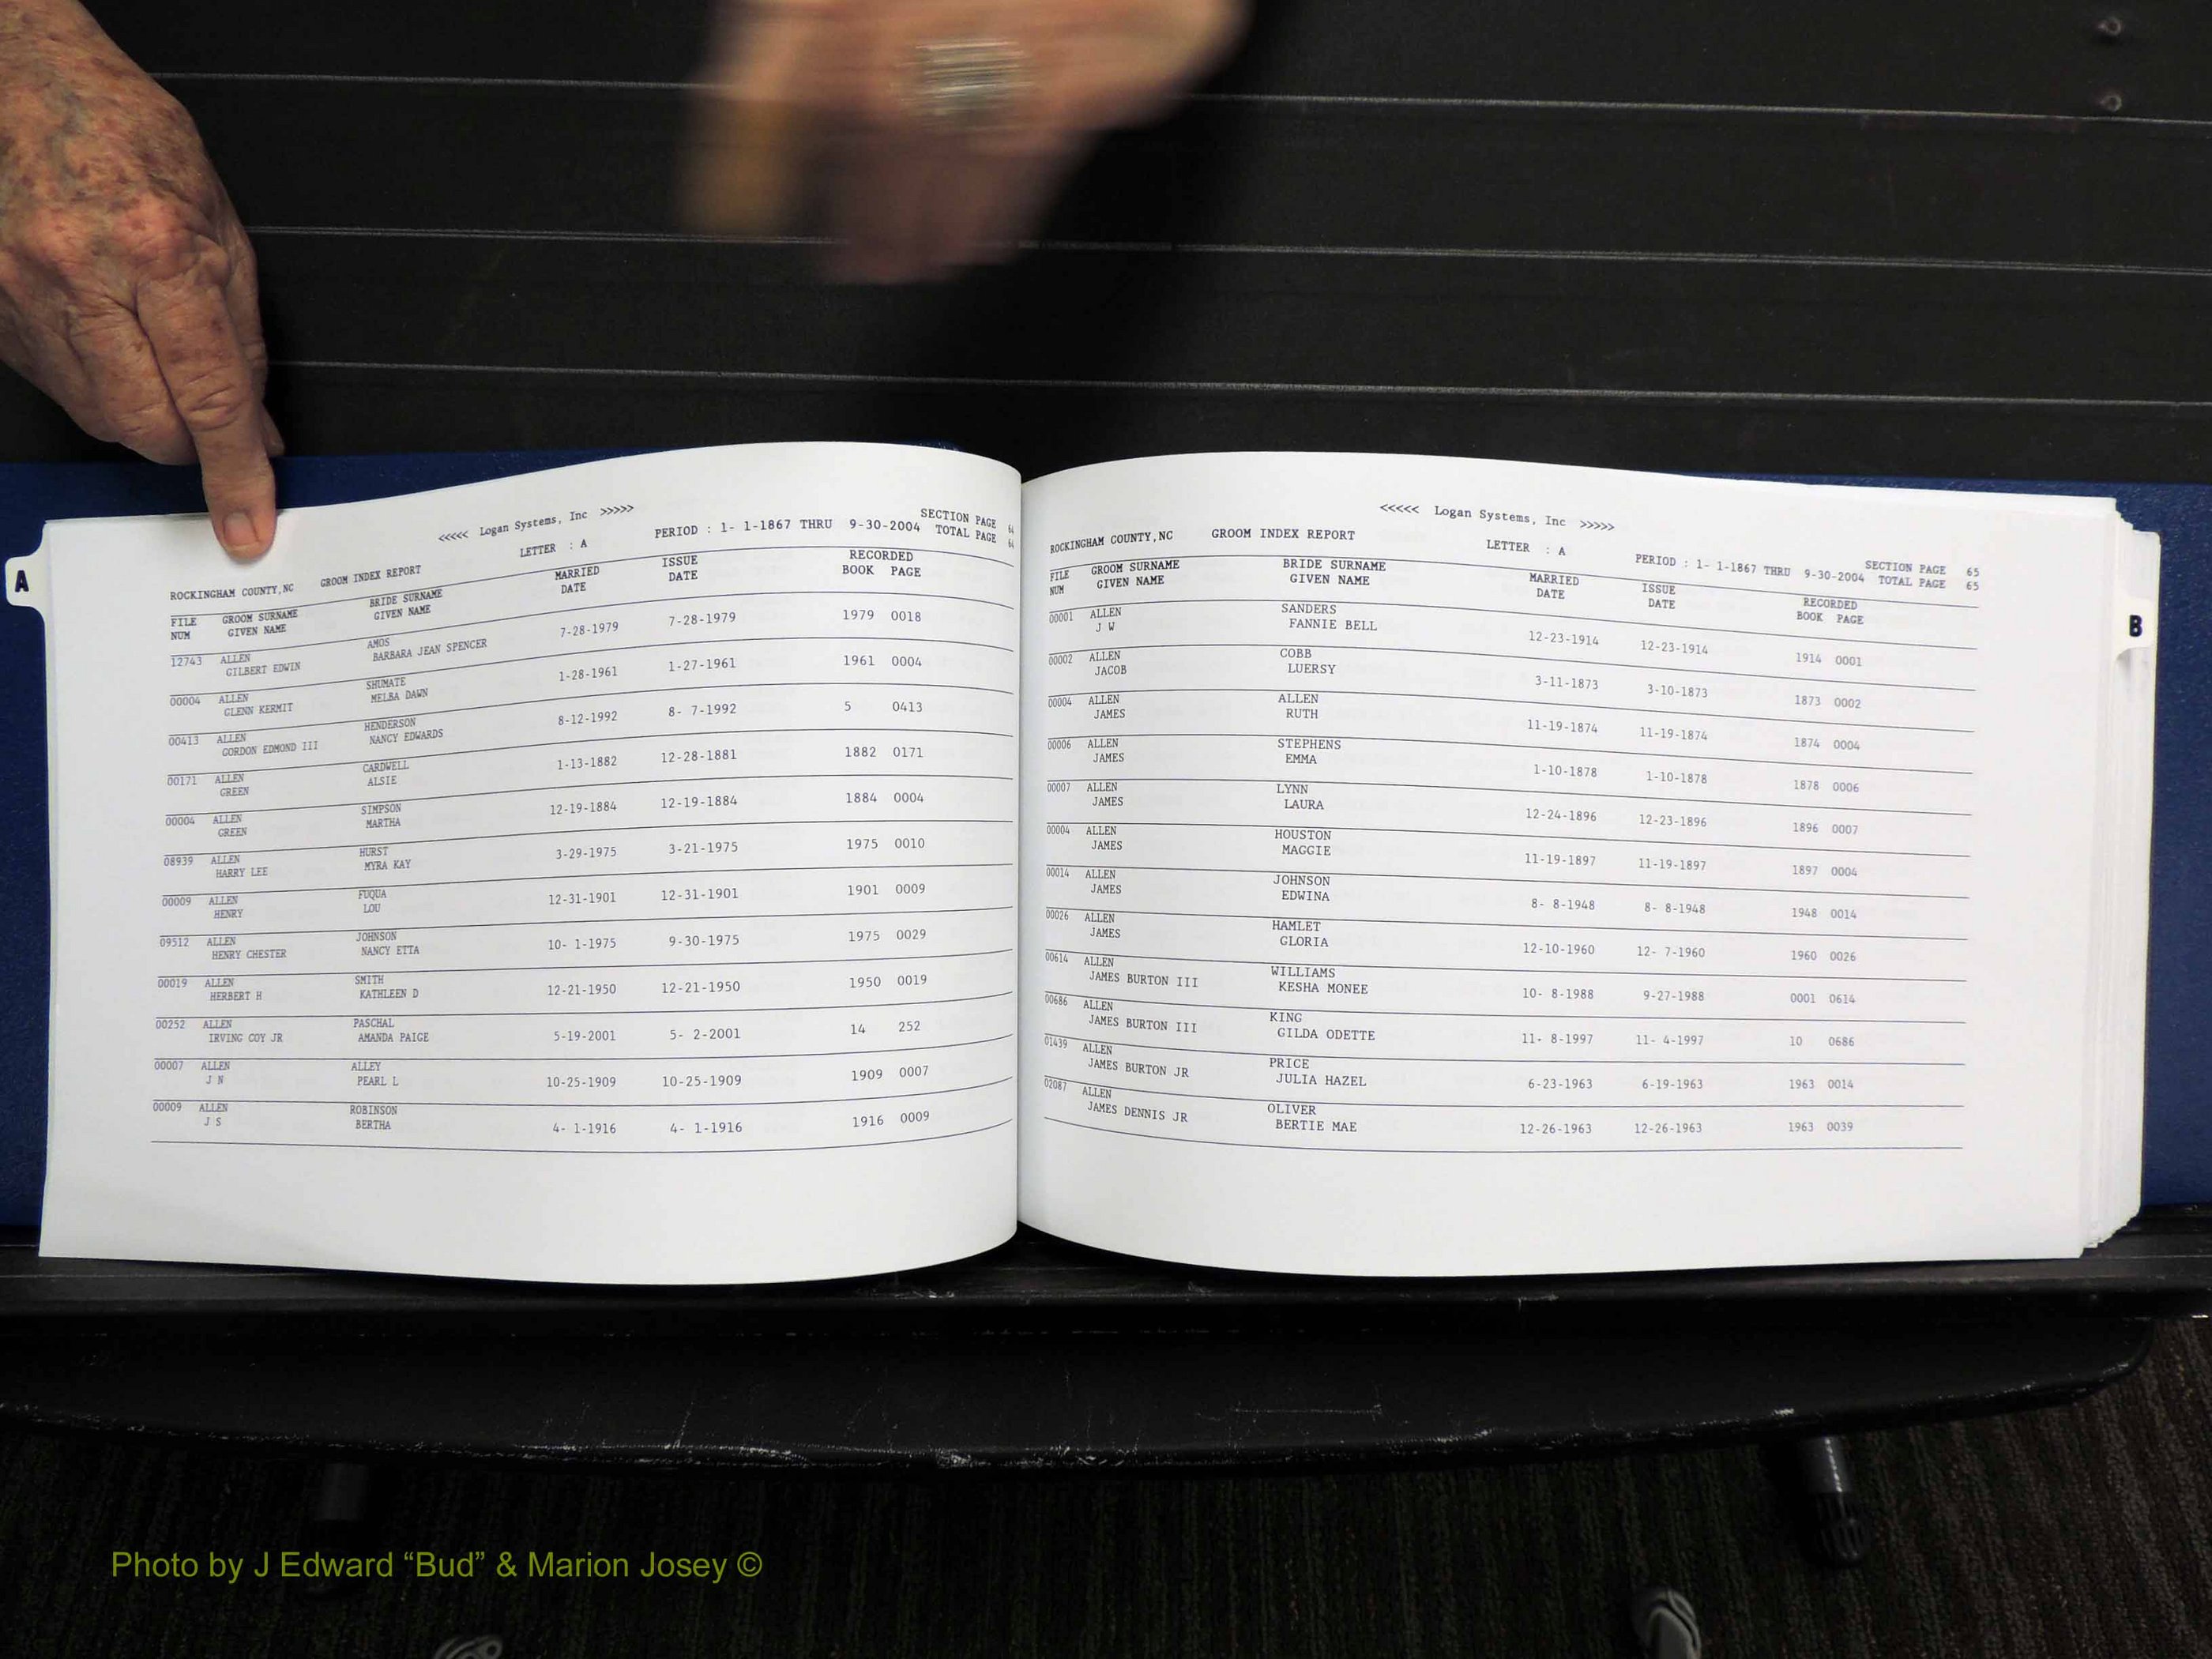 A
<<<<< Logan Systems, Inc >>>>>
SECTION PAGE 64
ROCKINGHAM COUNTY,NC GROOM INDEX REPORT LETTER : A PERIOD : 1- 1-1867 THRU 9-30-2004 TOTAL PAGE 64
FILE GROOM SURNAME BRIDE SURNAME MARRIED ISSUE RECORDED
NUM GIVEN NAME GIVEN NAME DATE DATE BOOK PAGE
12743 ALLEN AMOS 7-28-1979 7-28-1979 1979 0018
GILBERT EDWIN BARBARA JEAN SPENCER
00004 ALLEN SHUMATE 1-28-1961 1-27-1961 1961 0004
GLENN KERMIT MELBA DAWN
00413 ALLEN HENDERSON 8-12-1992 8- 7-1992 5 0413
GORDON EDMOND III NANCY EDWARDS
00171 ALLEN CARDWELL 1-13-1882 12-28-1881 1882 0171
GREEN ALSIE
00004 ALLEN SIMPSON 12-19-1884 12-19-1884 1884 0004
GREEN MARTHA
08939 ALLEN HURST 3-29-1975 3-21-1975 1975 0010
HARRY LEE MYRA KAY
00009 ALLEN FUQUA 12-31-1901 12-31-1901 1901 0009
HENRY LOU
09512 ALLEN JOHNSON 10- 1-1975 9-30-1975 1975 0029
HENRY CHESTER NANCY ETTA
00019 ALLEN SMITH 12-21-1950 12-21-1950 1950 0019
HERBERT H KATHLEEN D
00252 ALLEN PASCHAL 5-19-2001 5- 2-2001 14 252
IRVING COY JR AMANDA PAIGE
00007 ALLEN ALLEY 10-25-1909 10-25-1909 1909 0007
J N PEARL L
00009 ALLEN ROBINSON 4- 1-1916 4- 1-1916 1916 0009
J S BERTHA
<<<<< Logan Systems, Inc >>>>>
SECTION PAGE 65
ROCKINGHAM COUNTY,NC GROOM INDEX REPORT LETTER : A PERIOD : 1- 1-1867 THRU 9-30-2004 TOTAL PAGE 65
FILE GROOM SURNAME BRIDE SURNAME MARRIED ISSUE RECORDED
NUM GIVEN NAME GIVEN NAME DATE DATE BOOK PAGE
00001 ALLEN SANDERS 12-23-1914 12-23-1914 1914 0001
J W FANNIE BELL
00002 ALLEN COBB 3-11-1873 3-10-1873 1873 0002
JACOB LUERSY
00004 ALLEN ALLEN 11-19-1874 11-19-1874 1874 0004
JAMES RUTH
00006 ALLEN STEPHENS 1-10-1878 1-10-1878 1878 0006
JAMES EMMA
00007 ALLEN LYNN 12-24-1896 12-23-1896 1896 0007
JAMES LAURA
00004 ALLEN HOUSTON 11-19-1897 11-19-1897 1897 0004
JAMES MAGGIE
00014 ALLEN JOHNSON 8- 8-1948 8- 8-1948 1948 0014
JAMES EDWINA
00026 ALLEN HAMLET 12-10-1960 12- 7-1960 1960 0026
JAMES GLORIA
00614 ALLEN WILLIAMS 10- 8-1988 9-27-1988 0001 0614
JAMES BURTON III KESHA MONEE
00686 ALLEN KING 11- 8-1997 11- 4-1997 10 0686
JAMES BURTON III GILDA ODETTE
01439 ALLEN PRICE 6-23-1963 6-19-1963 1963 0014
JAMES BURTON JR JULIA HAZEL
02087 ALLEN OLIVER 12-26-1963 12-26-1963 1963 0039
JAMES DENNIS JR BERTIE MAE
B
Photo by J Edward “Bud” & Marion Josey ©